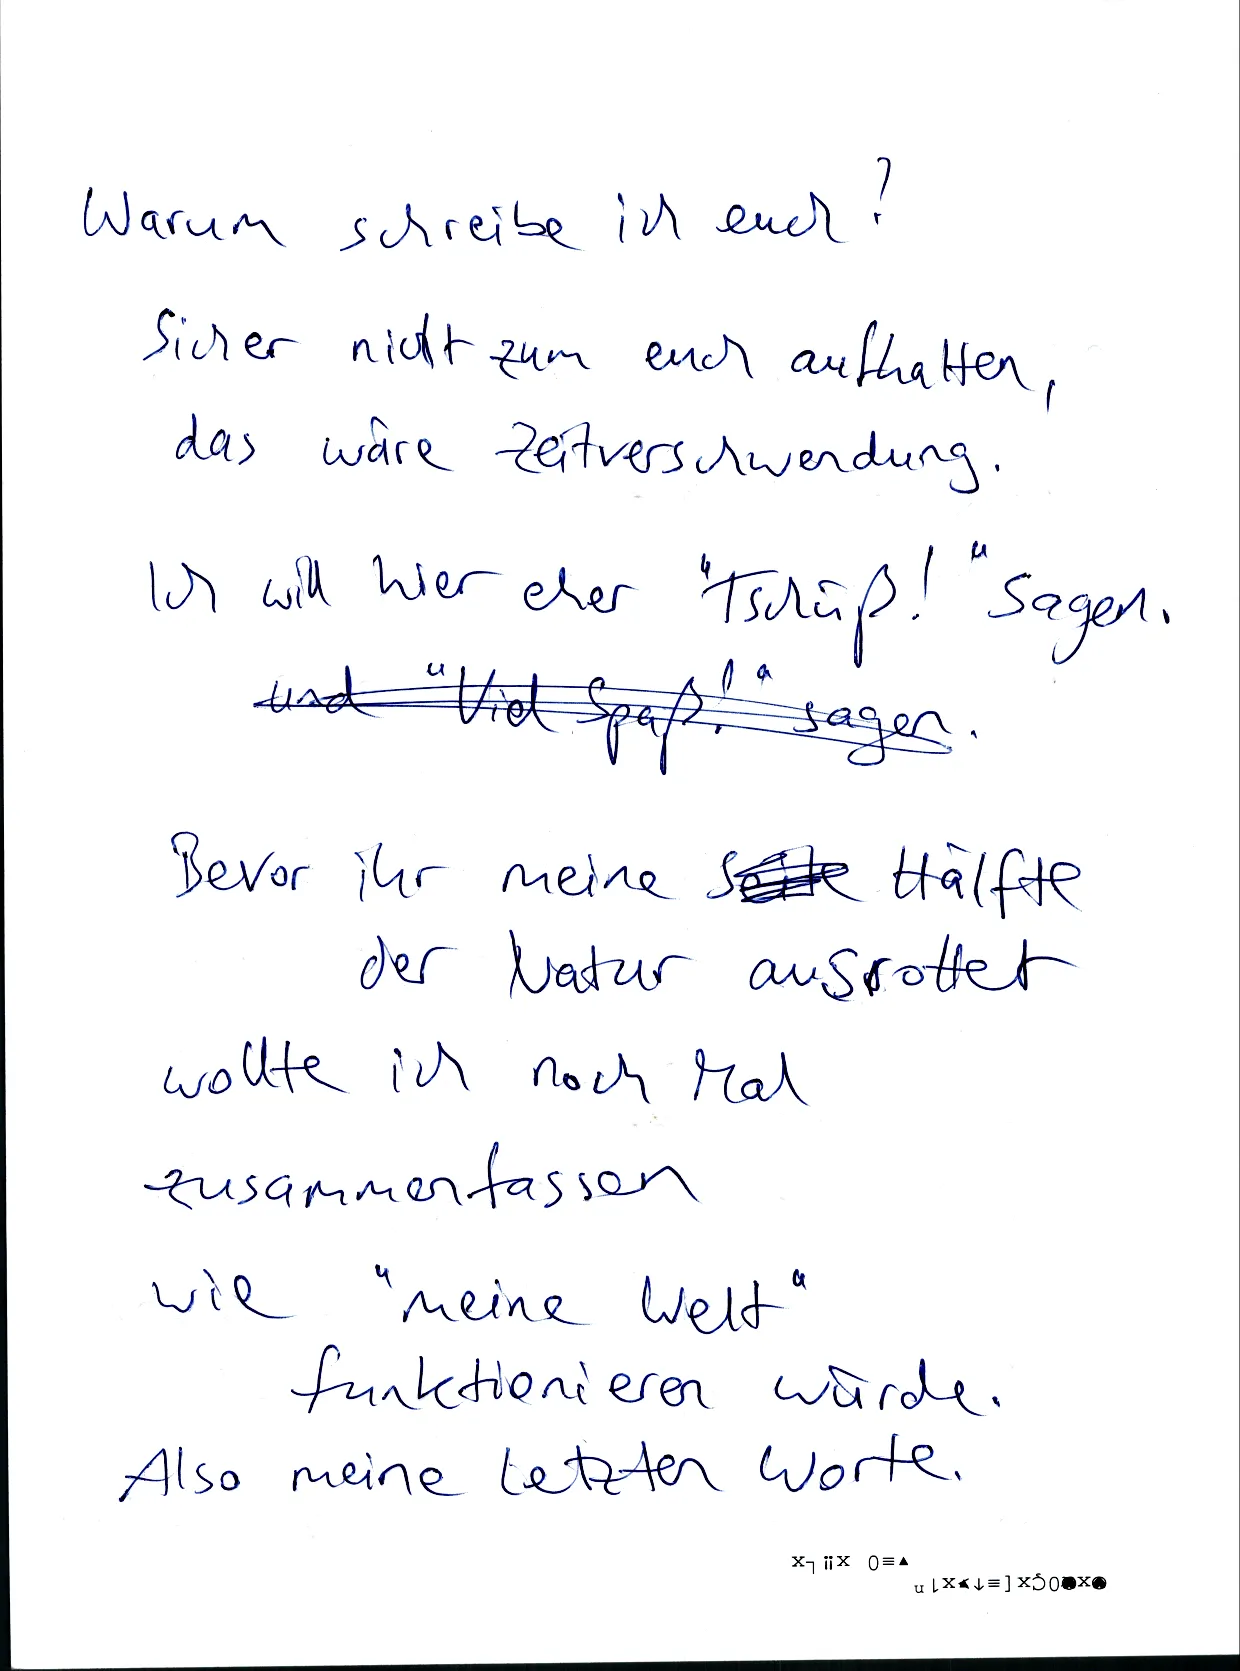 Warum schreibe ich euch?
Sicher nicht zum euch aufhalten,
das wäre Zeitverschwendung.
Ich will hier eher "Tschüß!" sagen.
und "Viel Spaß!" sagen.
Bevor ihr meine Seite Hälfte
der Natur ausrottet
wollte ich noch Mal
zusammenfassen
wie "meine Welt"
funktionieren würde.
Also meine letzten Worte.